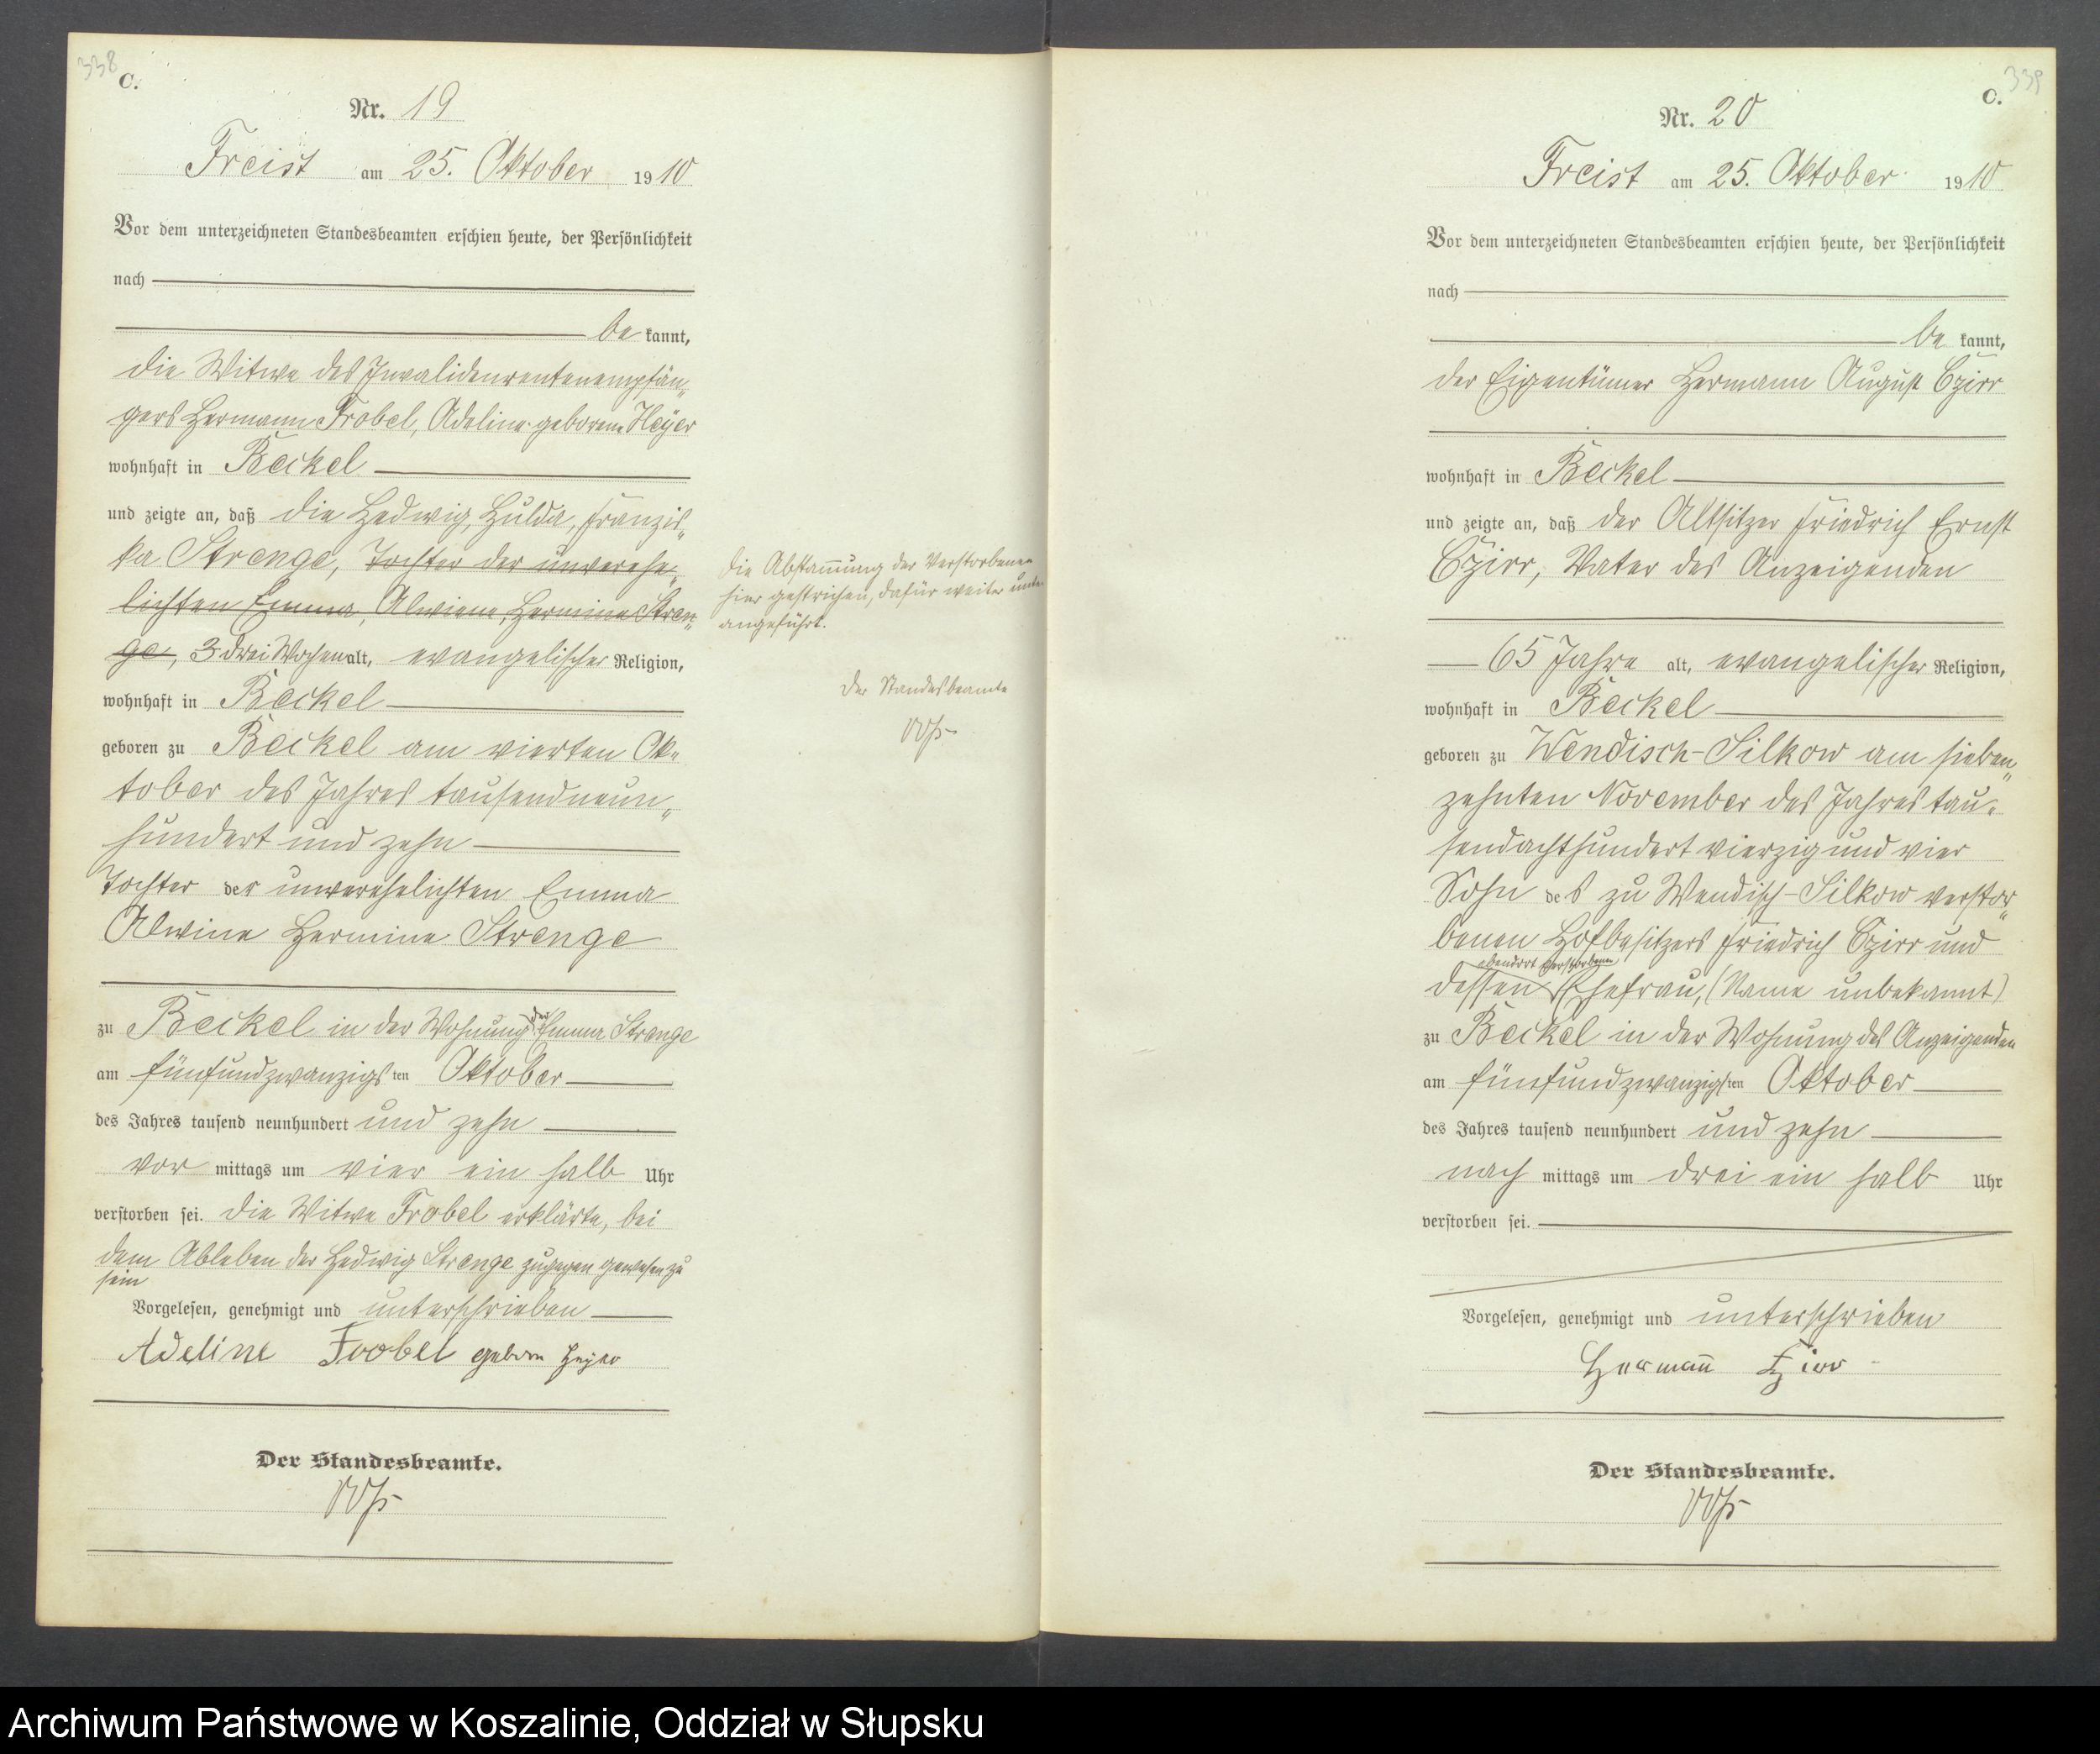 338
C.
Nr. 19
Freist am 25. Oktober 1910
Vor dem unterzeichneten Standesbeamten erschien heute, der Persönlichkeit
nach
be kannt,
die Witwe des Invalidenrentenempfän„
gers Hermann Frobel, Adeline geborene Heyer
wohnhaft in Beckel
und zeigte an, daß die Hedwig, Hulda, Franzis„
ka Strenge, Tochter der unverehe„
lichten Emma, Alwiene, Hermine Stren„
ge, 3 drei Wochen alt, evangelischer Religion,
wohnhaft in Beckel
geboren zu Beckel am vierten Ok„
tober des Jahres tausendneun„
hundert und zehn
Tochter der unverehelichten Emma
Alwine Hermine Strenge
zu Beckel in der Wohnung der Emma Strenge
am fünfundzwanzigsten Oktober
des Jahres tausend neunhundert und zehn
vor mittags um vier ein halb Uhr
verstorben sei. Die Witwe Frobel erklärte, bei
dem Ableben der Hedwig Strenge zugegen gewesen zu
sein
Vorgelesen, genehmigt und unterschrieben
Adeline Frobel geborn Heyer
Der Standesbeamte.
Die Abstam̄ung der Verstorbenen
hier gestrichen, dafür weiter unten
angeführt.
Der Standesbeamte
339
C.
Nr. 20
Freist am 25. Oktober 1910
Vor dem unterzeichneten Standesbeamten erschien heute, der Persönlichkeit
nach
be kannt,
der Eigentümer Hermann August Czirr
wohnhaft in Beckel
und zeigte an, daß der Altsitzer Friedrich Ernst
Czirr, Vater des Anzeigenden
65 Jahre alt, evangelischer Religion,
wohnhaft in Beckel
geboren zu Wendisch-Silkow am sieben„
zehnten November des Jahres tau„
sendachthundert vierzig und vier
Sohn des zu Wendisch-Silkow verstor„
benen Hofbesitzers Friedrich Czirr und
ebendort verstorbenen
dessen Ehefrau, (Name unbekannt)
zu Beckel in der Wohnung des Anzeigenden
am fünfundzwanzigsten Oktober
des Jahres tausend neunhundert und zehn
nach mittags um drei ein halb Uhr
verstorben sei.
Vorgelesen, genehmigt und unterschrieben
Herman̄ Czirr
Der Standesbeamte.
Archiwum Państwowe w Koszalinie, Oddział w Słupsku